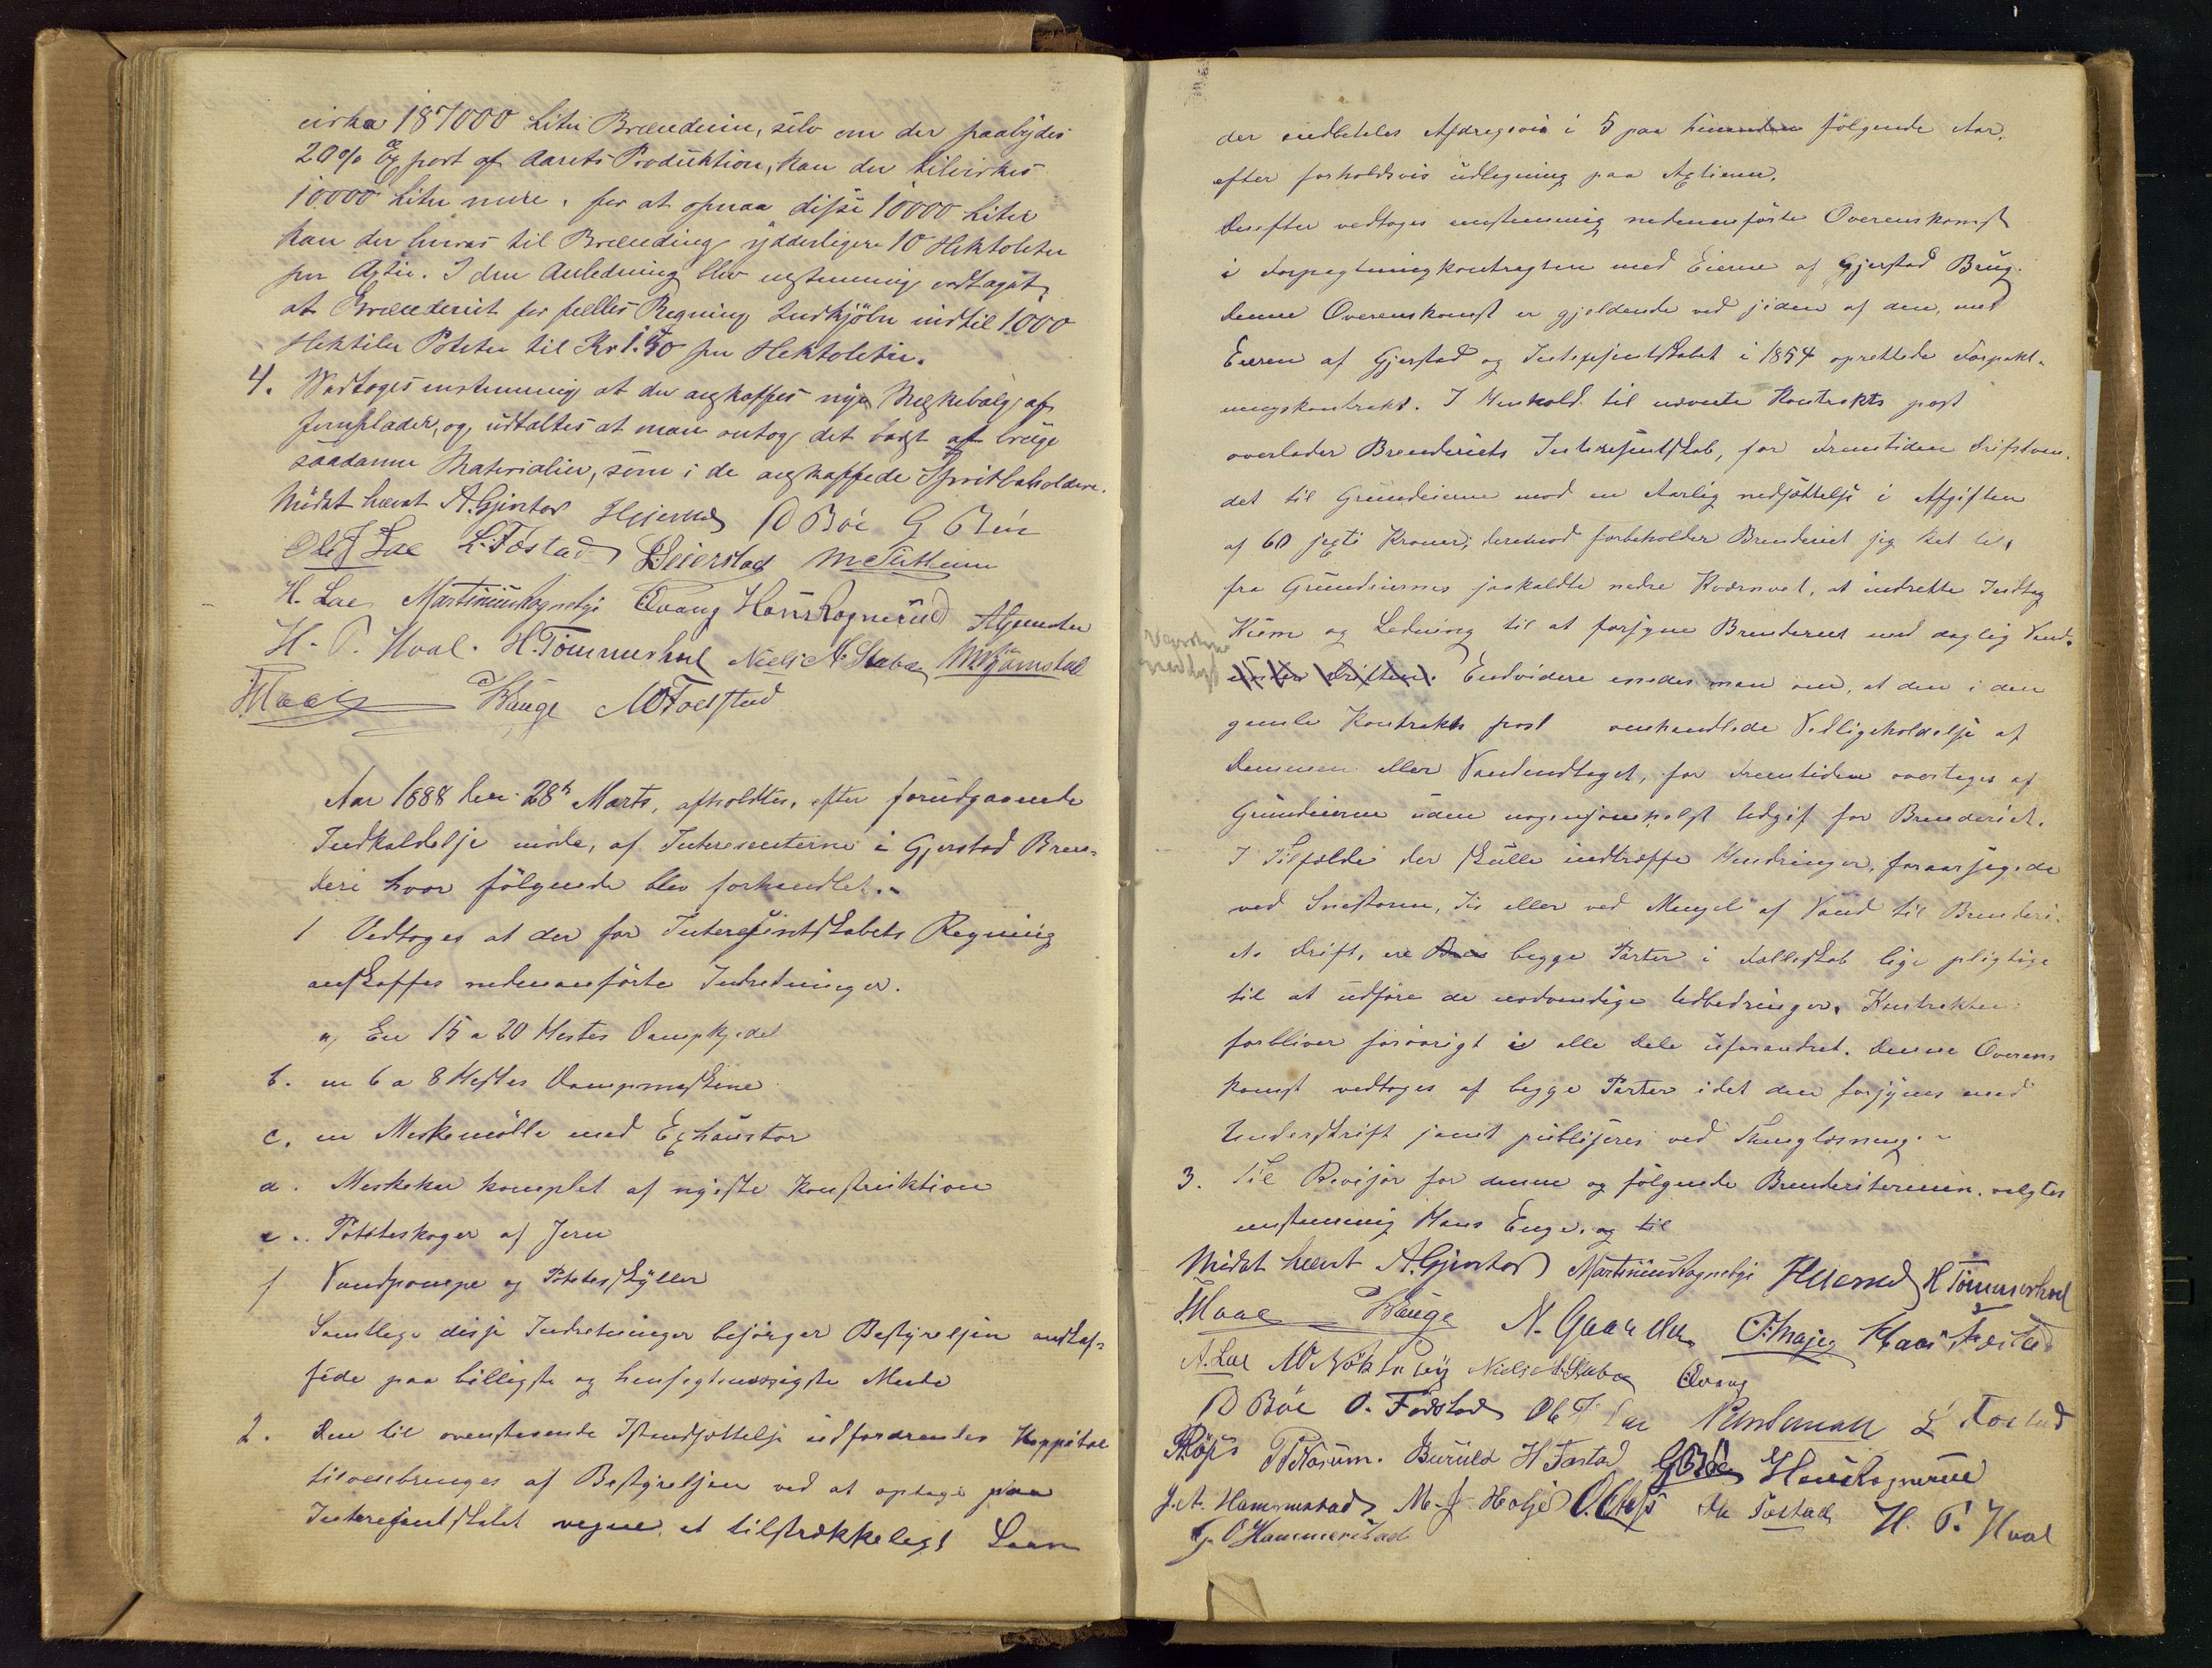 cirka 187000 Liter Brændevin, selv om der paabydes
20% Export af Aarets Produktion, kan der tilvirkes
10000 Liter mere. for at opnaa disse 10000 Liter
kan der leveres til Brænding ydderligere 10 Hektoliter
per Aktie. I den Anledning blev enstemmig vedtaget,
at Brænderiet for fælles Regning Indkjøber indtil 1000
Hektoliter Poteter til Kr 1.50 per Hektoliter.
4. Vedtoges enstemmig at der anskaffes nye Meskebalg af
Jernplader, og udtaltes at man antog det bedst at bruge
saadanne Materialier, som i de anskaffede Spiritbeholdere.
Mødet hævet A. Gjerstad Hejernd O Böe G Böe
Ole J Lae L. Fostad Seierstad
H. Lae Martinius Rognebye Qvang Hans Rognerud
H. P. Hval. H. Tömmerhol Niels A. Staba
Hauge
Aar 1888 den 28de Marts, afholdtes, efter forudgaaende
Indkaldelse møde, af Interesenterne i Gjerstad Bren-
deri hvor følgende blev forhandlet.-
1 Vedtoges at der for Interesentskabets Regning
anskaffes nedenanførte Indretninger.
a, En 15 a 20 Hestes Dampkjedel
b. en 6 a 8 Hestes Dampmaskine
c. en Meskemølle med Exhaustor
d. Meskekar komplet af nyeste Konstruktion
e. Poteteskoger af Jern
f Vandpompe og Poteteskyller
Samtlige disse Indretninger besörger Bestyrelsen anskaf-
fede paa billigste og hensigtsmæssigste Maade
2. Den til ovenstaaende Istandsættelse udfordrendes Kappital
tilveiebringes af Bestyrelsen ved at optage paa
Interesentskabet vegne, et tilstrækkeligt Laan
der indbetales Afdragsvis i 5 paa hinanden følgende Aar,
efter forholdsvis udlegning paa Aktierne.
Derefter vedtoges enstemmig nedenanførte Overenskomst
i Forpagtningkontragten med Eierne af Gjerstad Brug.
Denne Overenskomst er gjeldende ved siden af den, med
Eieren af Gjerstad og Interesentskabet i 1854 oprettede Forpakt-
ningskontrakt. I Henhold til nævnte Kontrakts post
overlader Brenderiets Interesentskab, for Fremtiden Driftsvan-
det til Grundeierne mod en Aarlig nedsættelse i Afgiften
af 60 sexti Kroner; derimod forbeholder Brenderiet sig Ret til,
fra Grundeiernes saakaldte nedre Kværnvel, at indrette Indtag
Kum og Ledning til at forsyne Brenderiet med daglig Vand.
under driften. Endvidere enedes man om, at den i den
gamle Kontrakts post omhandlede Vedligeholdelse af
Dammen eller Vandindtaget, for Fremtiden overtages af
Grundeierne uden nogensomhelst Udgift for Brenderiet.
I Tilfælde der skulle indtræffe Hindringer, foraarsagede
ved Snestorm, Iis eller ved Mangel af Vand til Brenderi-
ets Drift, ere begge Parter i Fælleskab lige pligtige
til at udføre de nødvendige Udbedringer. Kontrakten
forbliver forøvrigt i alle Dele uforandret. Denne Overens
komst vedtoges af begge Parter idet den forsynes med
Underskrift samt publiseres ved Thinglæsning.-
3. Til Revisor for denne og følgende Brenderitermin, valgtes
enstemmig Hans Enge, og til
Mødet hævet A. Gjerstad Martinius Rognebye Hejernd H Tömmerhol
Hauge N. Gaarder
A. Lae Niels A Staba Qvang
O Böe O. Fodstad Ole J Lae L Fostad
Buruld H Fostad G Böe Hans Rognerud
J. A. Hammerstad M. J. Holje Fostad H. P. Hval
G. O Hammerstad